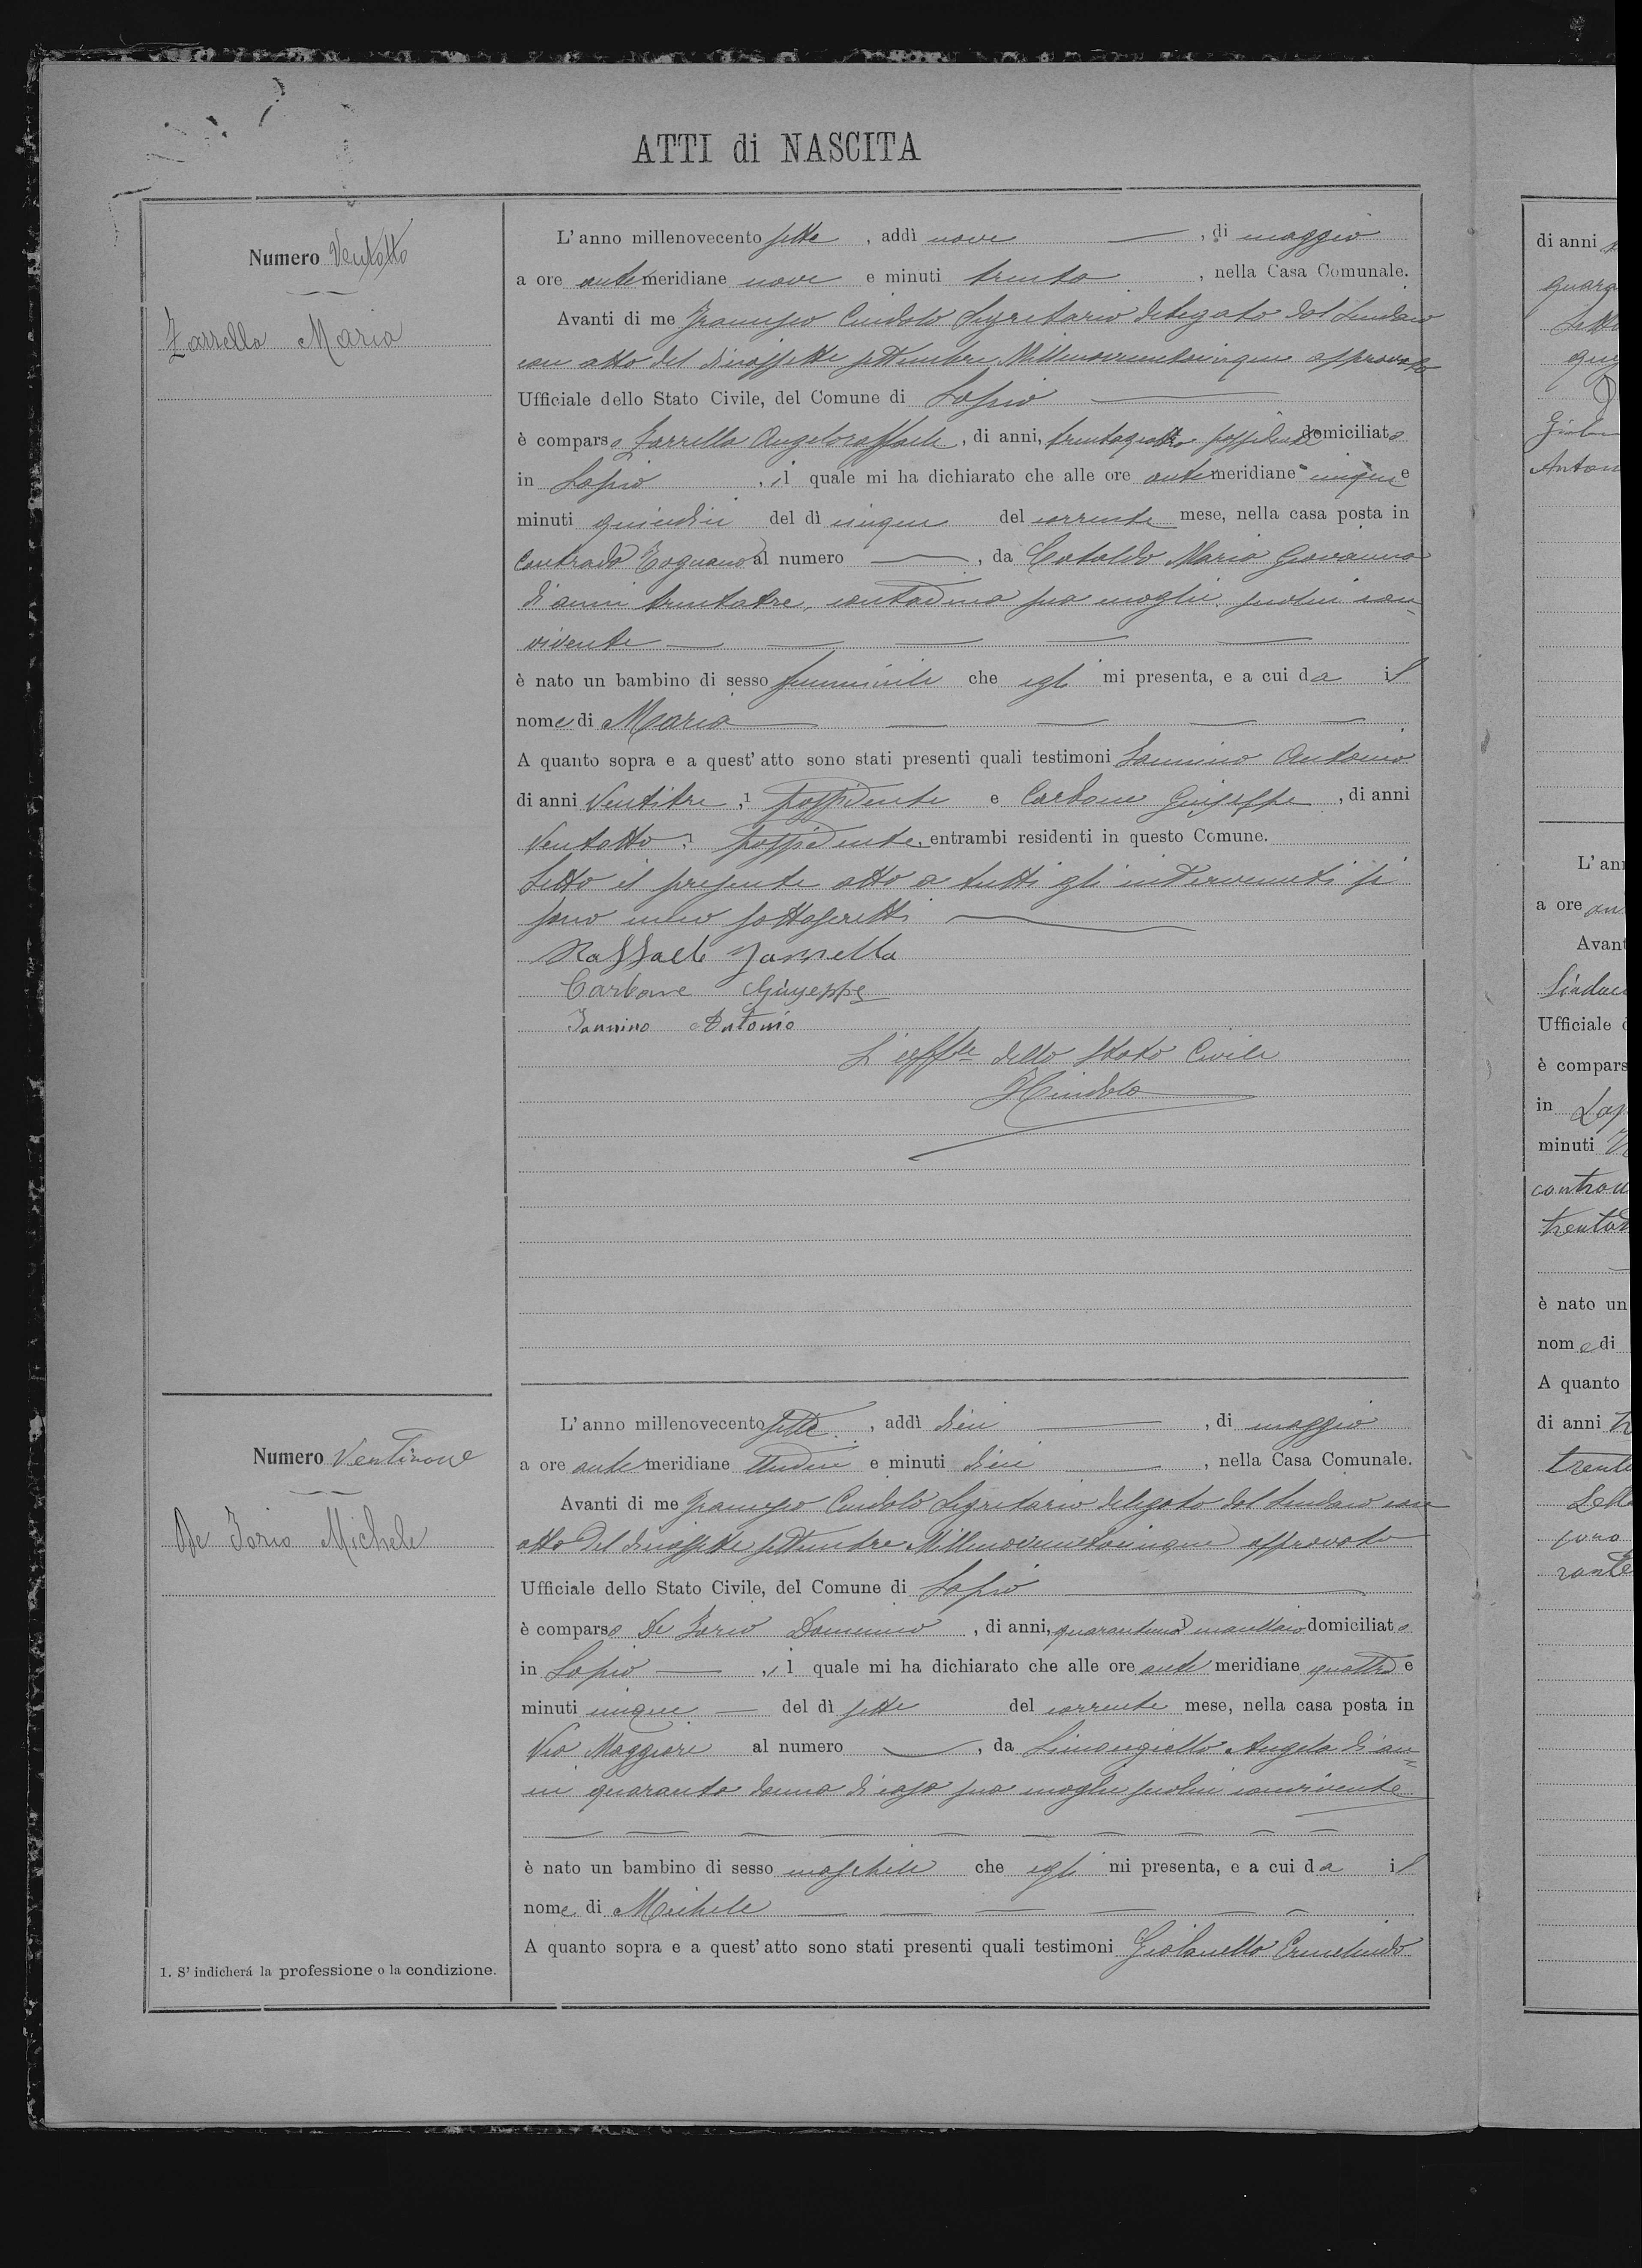 ATTI di NASCITA
Numero Ventotto
Zarrella Maria
L'anno millenovecento sette, addì nove, di maggio
a ore antemeridiane nove e minuti trenta, nella Casa Comunale.
Avanti di me Francesco Cindolo Segretario delegato dal Sindaco
con atto del diciassette settembre Millenovecentocinque approvato
Ufficiale dello Stato Civile, del Comune di Lapio
è comparso Zarrella Angeloraffaele, di anni, trentaquattro possidente domiciliato
in Lapio, il quale mi ha dichiarato che alle ore antemeridiane cinque e
minuti quindici del dì cinque del corrente mese, nella casa posta in
Contrada Tognano al numero, da Cataldo Maria Giovanna
di anni trentatre, contadina sua moglie, seco lui con-
vivente
è nato un bambino di sesso femminile che egli mi presenta, e a cui da il
nome di Maria
A quanto sopra e a quest'atto sono stati presenti quali testimoni Iannino Antonio
di anni Ventitre, 1 possidente e Carbone Giuseppe, di anni
Ventotto, 1 possidente, entrambi residenti in questo Comune.
Letto il presente atto a tutti gli intervenuti si
sono meco sottoscritti
Raffaele Zarrella
Carbone Giuseppe
Iannino Antonio
L'uffle dello Stato Civile
FCindolo
Numero Ventinove
De Iorio Michele
L'anno millenovecento sette, addì dieci, di maggio
a ore antemeridiane undici e minuti dieci, nella Casa Comunale.
Avanti di me Francesco Cindolo Segretario delegato dal Sindaco con
atto del diciassette settembre Millenovecentocinque approvato
Ufficiale dello Stato Civile, del Comune di Lapio
è comparso De Iorio Domenico, di anni, quarantuno 1 domiciliato
in Lapio, il quale mi ha dichiarato che alle ore antemeridiane quattro e
minuti cinque del dì sette del corrente mese, nella casa posta in
Via Maggiore al numero, da Limongiello Angela di an=
ni quaranta donna di casa sua moglie seco lui convivente
è nato un bambino di sesso maschile che egli mi presenta, e a cui da il
nome di Michele
A quanto sopra e a quest'atto sono stati presenti quali testimoni Ermelindo
1. S'indicherá la professione o la condizione.
di anni
L'an
a ore an
Avant
Sindaco
Ufficiale
è compars
in Lap
minuti
contrad
è nato un
nome di
A quanto
di anni